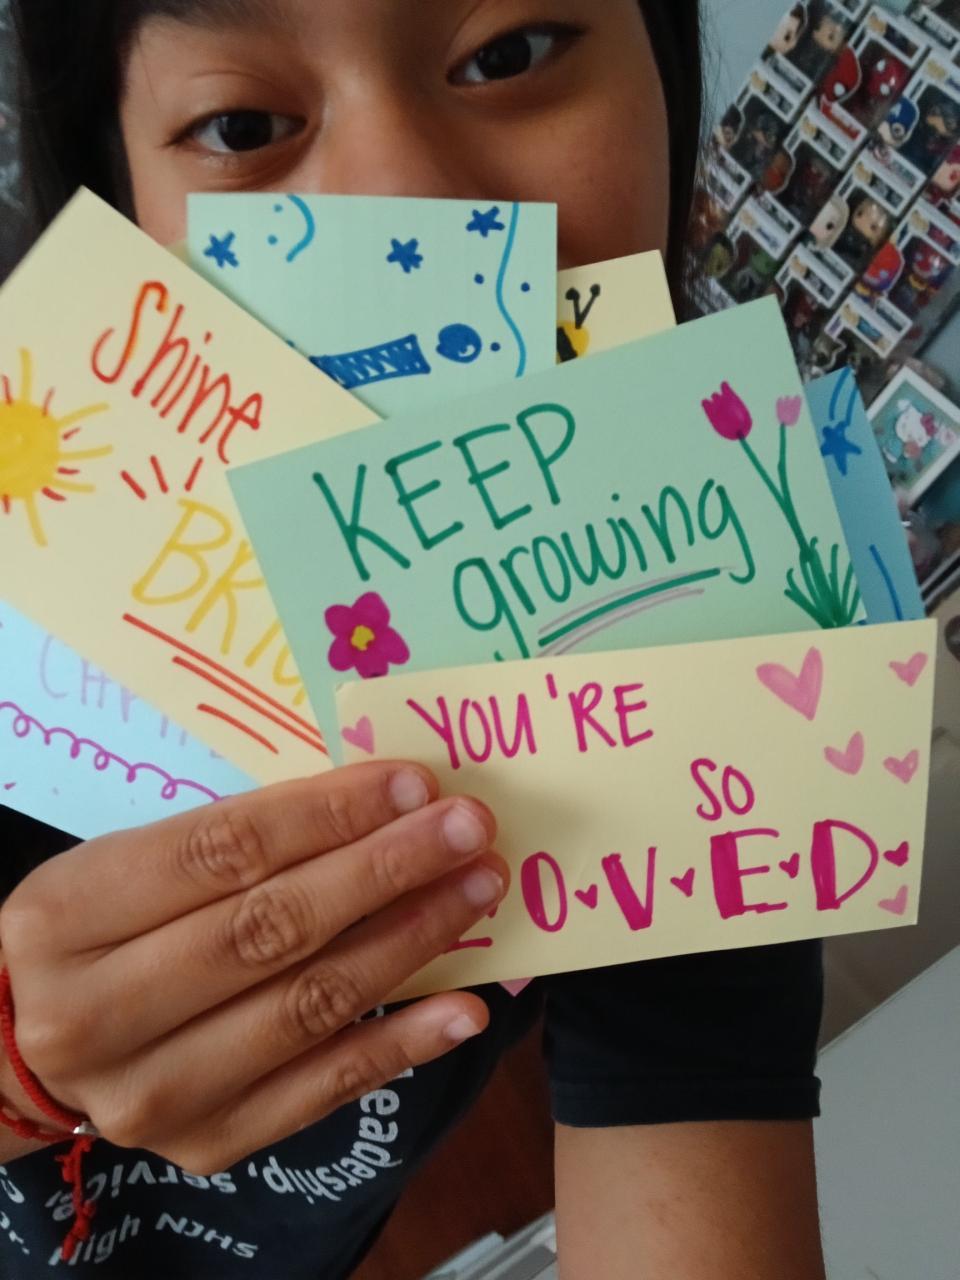 Shine
KEEP
growing
YOU'RE
SO
O V E D
Leadership,
service
High NJHS